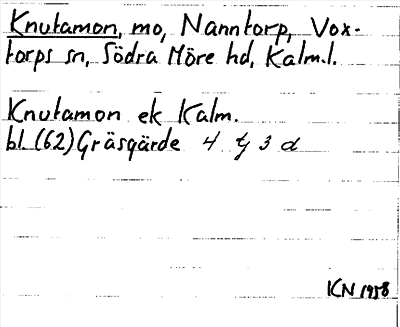 Knutamon, mo, Nanntorp, Vox-
torps sn, Södra Möre hd, Kalm.l.
Knutamon ek Kalm.
bl. (62) Gräsgärde 4 g 3 d
KN 1958